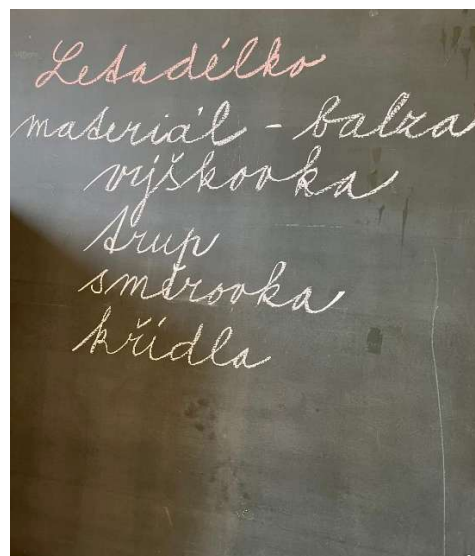 Letadélko
materiál - balza
výškovka
trup
směrovka
křídla